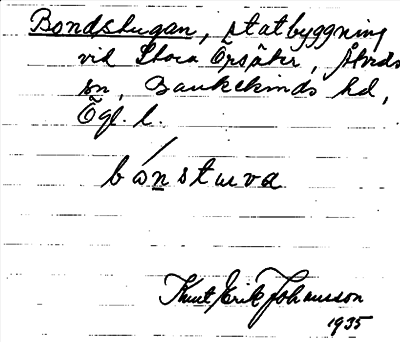 Bondstugan, statbyggning
vid Stora Örsäter, Åtvids
sn, Bankekinds hd,
Ögl. l.
bo̱nstuva
Knut Erik Johansson
1935